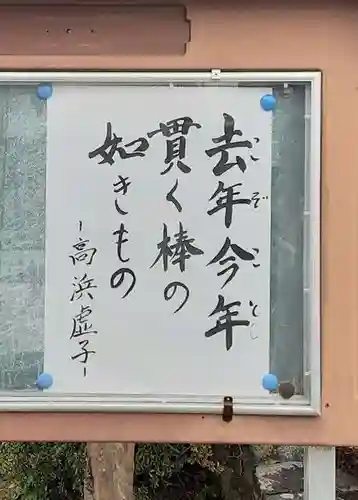 去年今年
こぞことし
貫く棒の
如きもの
-高浜虚子-